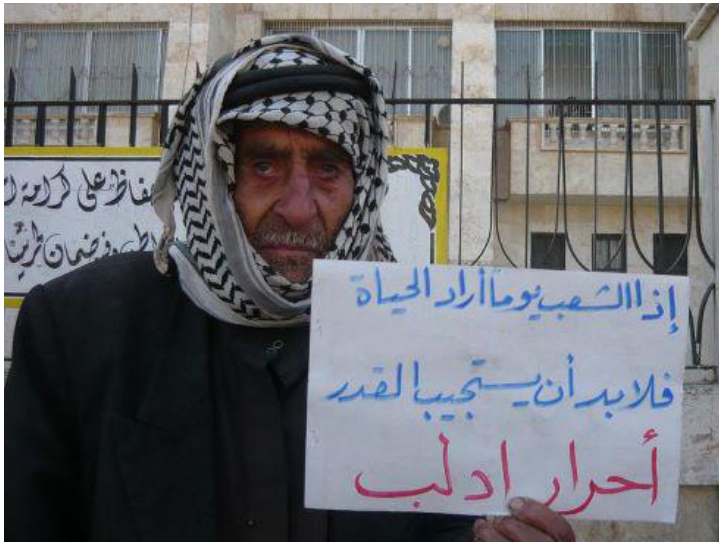 إذا الشعب يوماً أراد الحياة
فلا بد أن يستجيب القدر
أحرار ادلب
على كرامة